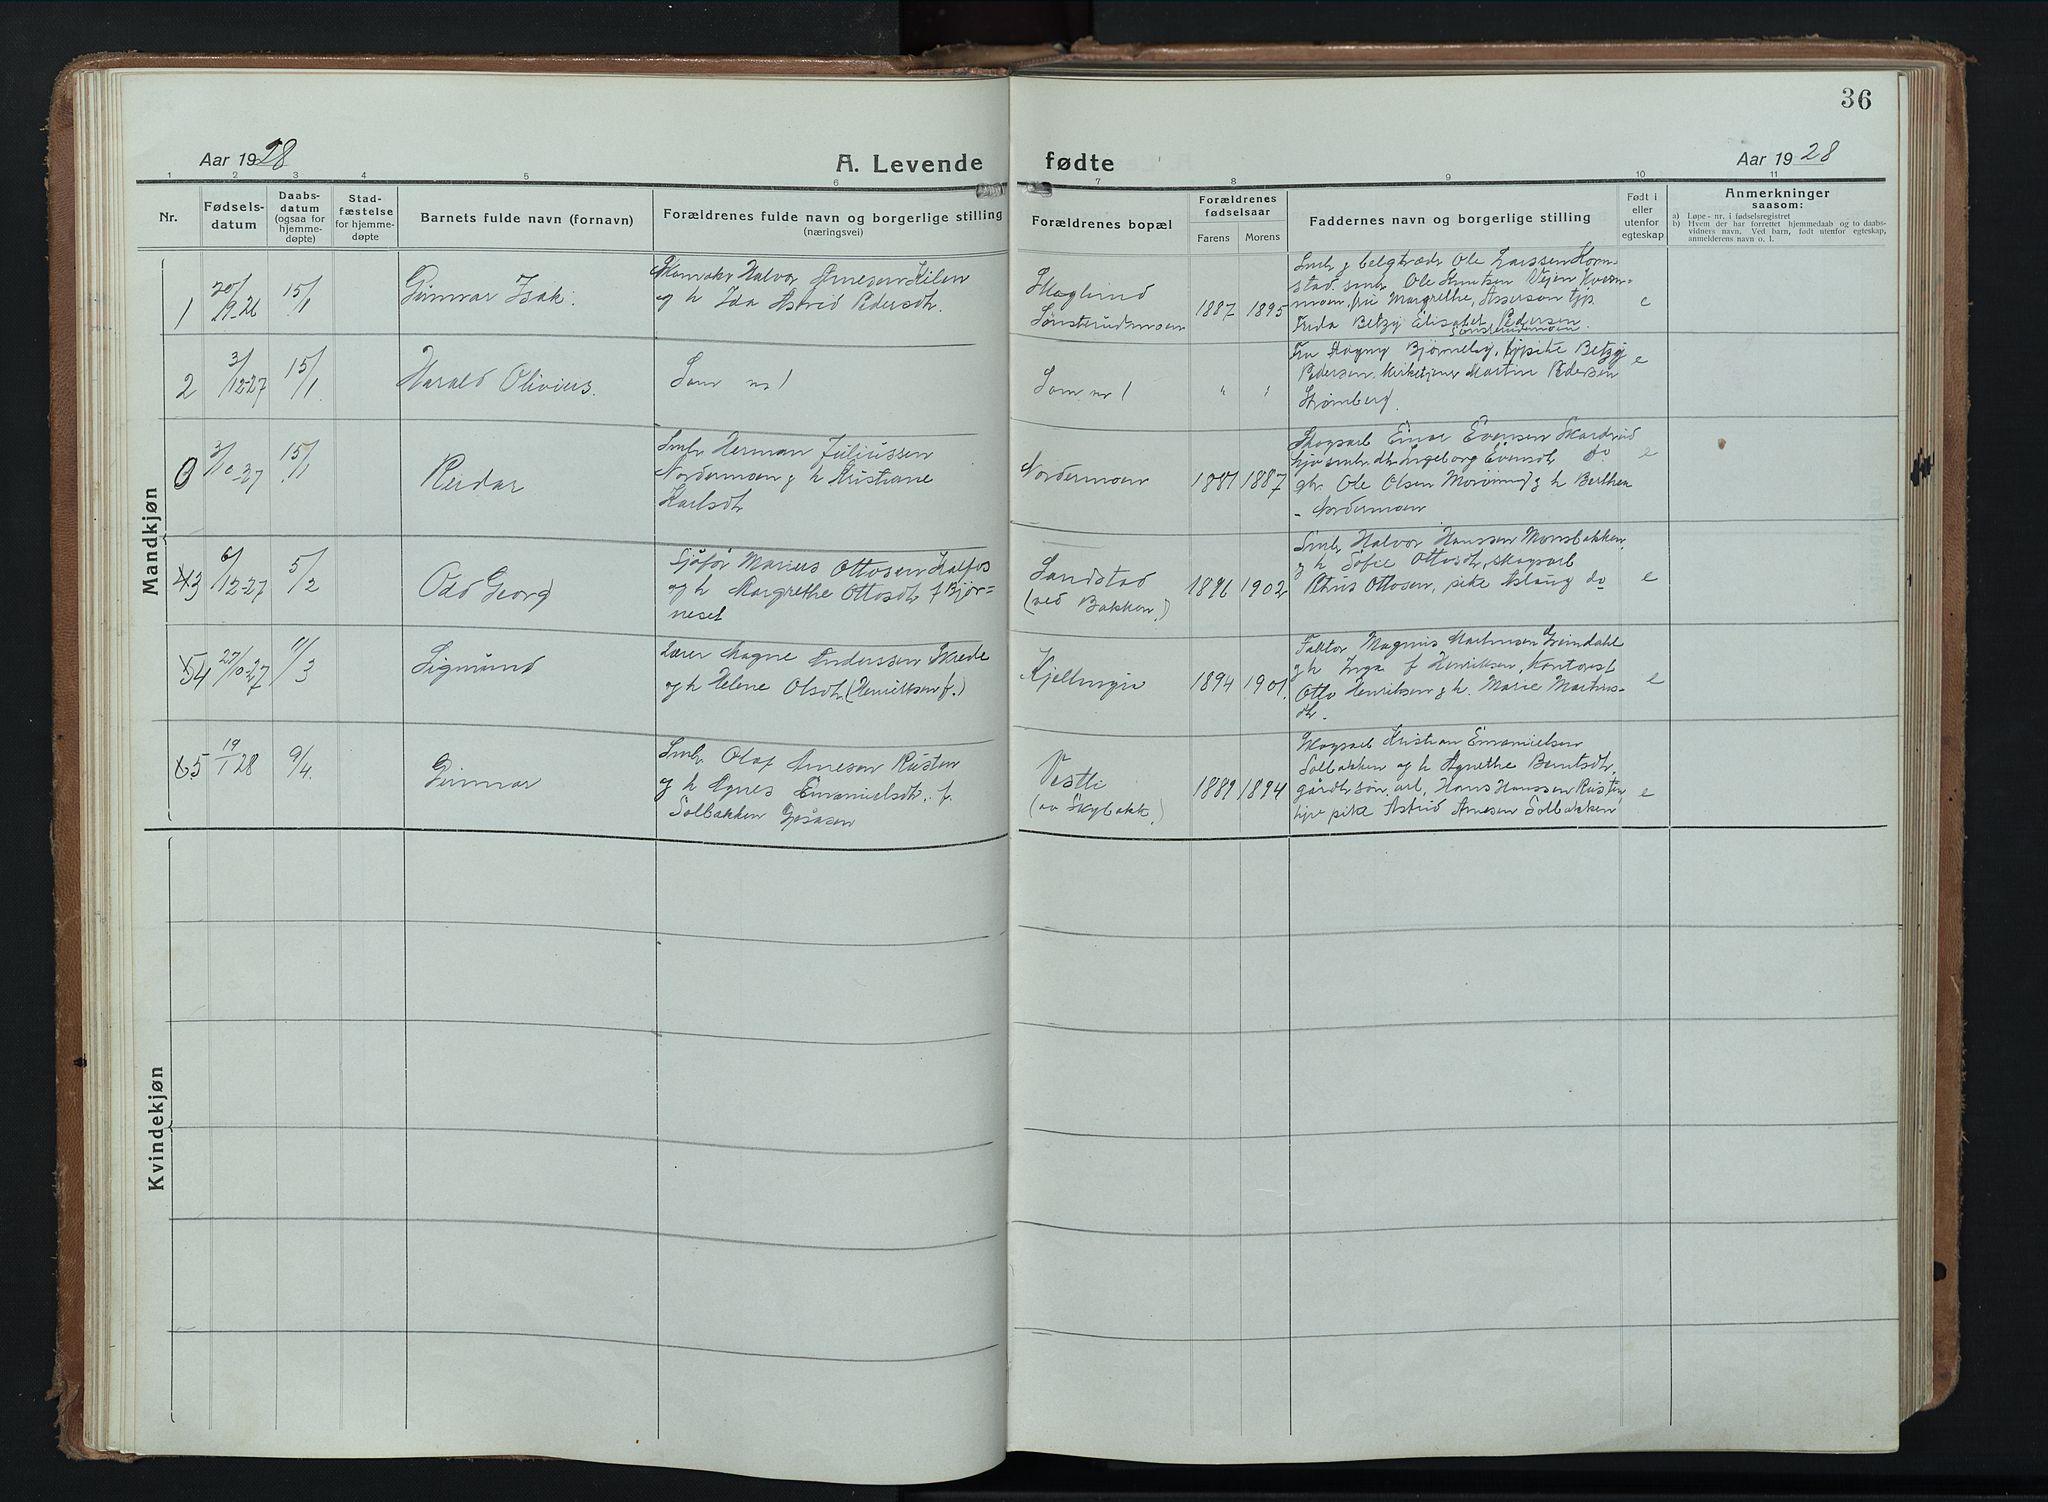 36
Aar 1928
A. Levende fødte
Aar 1928
1 2 3 4 5 6 7 8 9 10 11
Nr.
Fødselsdatum
Daabsdatum (ogsaa for hjemmedøpte)
Stadfæstelse for hjemmedøpte
Barnets fulde navn (fornavn)
Forældrenes fulde navn og borgerlige stilling
(næringsvei)
Forældrenes bopæl
Forældrenes fødselsaar
Farens Morens
Faddernes navn og borgerlige stilling
Født i eller utenfor egteskap
Anmerkninger saasom:
a) Løpe-nr. i fødselsregistret
b) Hvem der har forrettet hjemmedaab og to daabsvidners navn. Ved barn, født utenfor egteskap, anmelderens navn o. l.
Mandkjøn
1 20/9-26 15/1 Gunnar Isak
Skomaker Halvor Arnesen Kilen
og h Ida Astrid Pedersdtr.
Skoglund
Sønsterudmoen
1887 1895
Smbr g belgtræder Ole Larssen Korn-
stad. smbr Ole Knutsen Vejen Kvern-
moen, fru Margrethe Assersen
Frida Betzy Elisabet Pedersen
Sønsterudmoen
e
2 3/12-27 15/1 Harald Olivius.
Som nr 1
Som nr 1
" "
Fru Magny Bjørneby, Betzy
Pedersen. Kirketjener Martin Pedersen
Strømberg.
e
3/10-27 15/1 Reidar
Smbr Herman Juliussen
Nordermoen g h Kristiane
Karlsdtr
Nordermoen
1887 1887
Skogsarb Einar Evensen Skardrud
Ingeborg Evensdtr do
gbr Ole Olsen g h Berthea
- Nordermoen
e
3 6/12-27 5/2 Odd Georg
Sjåfør Marius Ottosen Kalfos
og h Margrethe Ottosdtr f Bjør-
neset
Sandstad
(ved Bakken)
1896 1902
Smbr Halvor Hanssen Monsbakken
g h Sofie Ottosdtr, skogsarb
Petrus Ottosen, pike Aslaug do
e
4 27/10-27 11/3 Sigmund
Lærer Magne Anderssen Skrede
og h Helene Olsdtr (Henriksen f.)
Kjellmyr
1894 1901
Faktor Magnus Martinsen Grindahl
g h Inga f Henriksen, Kontorist
Otto Henriksen g h. Marie Martins-
dtr.
e
5 19/1 28 9/4. Gunnar
Smbr Olaf Arnesen Rusten
g h Agnes Emanielsdtr. f.
Solbakken Gråsen
Vestli
(av Skybakk.)
1889 1894
Skogsarb Kristian Emanielsen
Solbakken og h Agnethe Berntsdtr,
gårdbr.søn. arb. Hans Hanssen Rusten
pike Astrid Arnesen Solbakken
e
Kvindekjøn